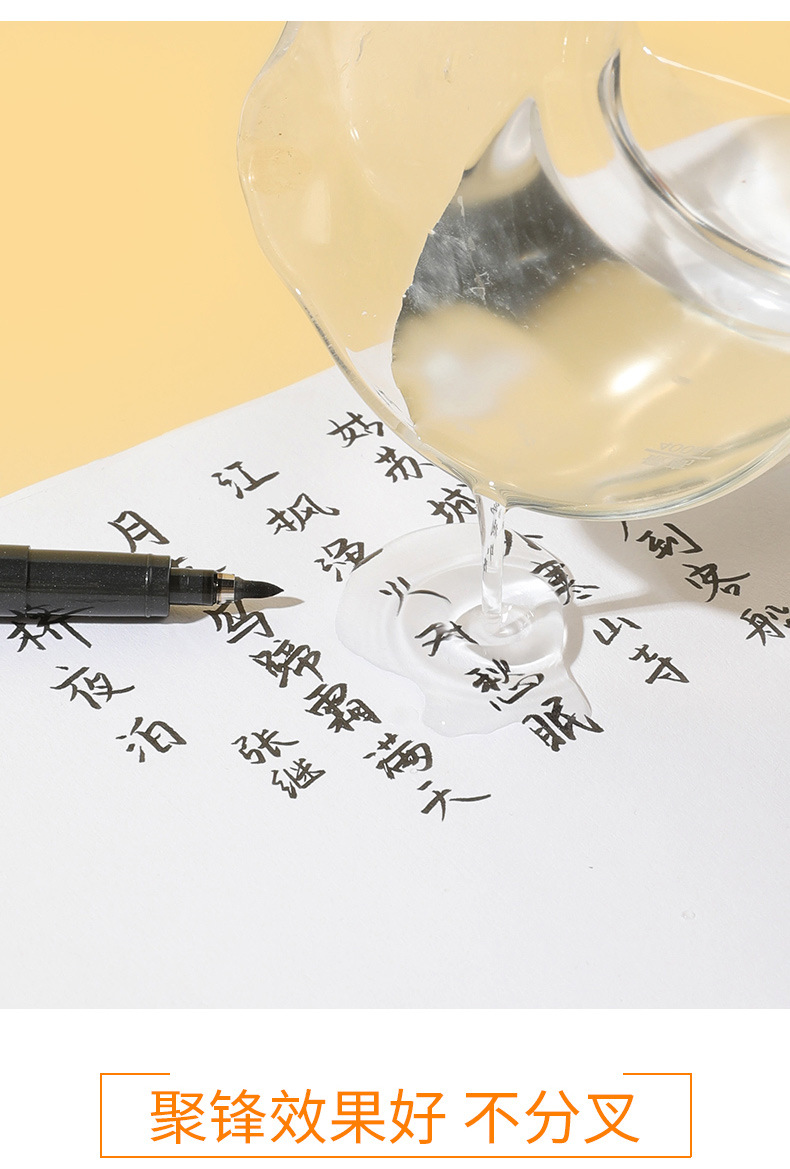 桥夜泊
张继
月乌蹄霜满天
江枫渔火对愁眠
姑苏城外寒山寺
到客船
聚锋效果好 不分叉